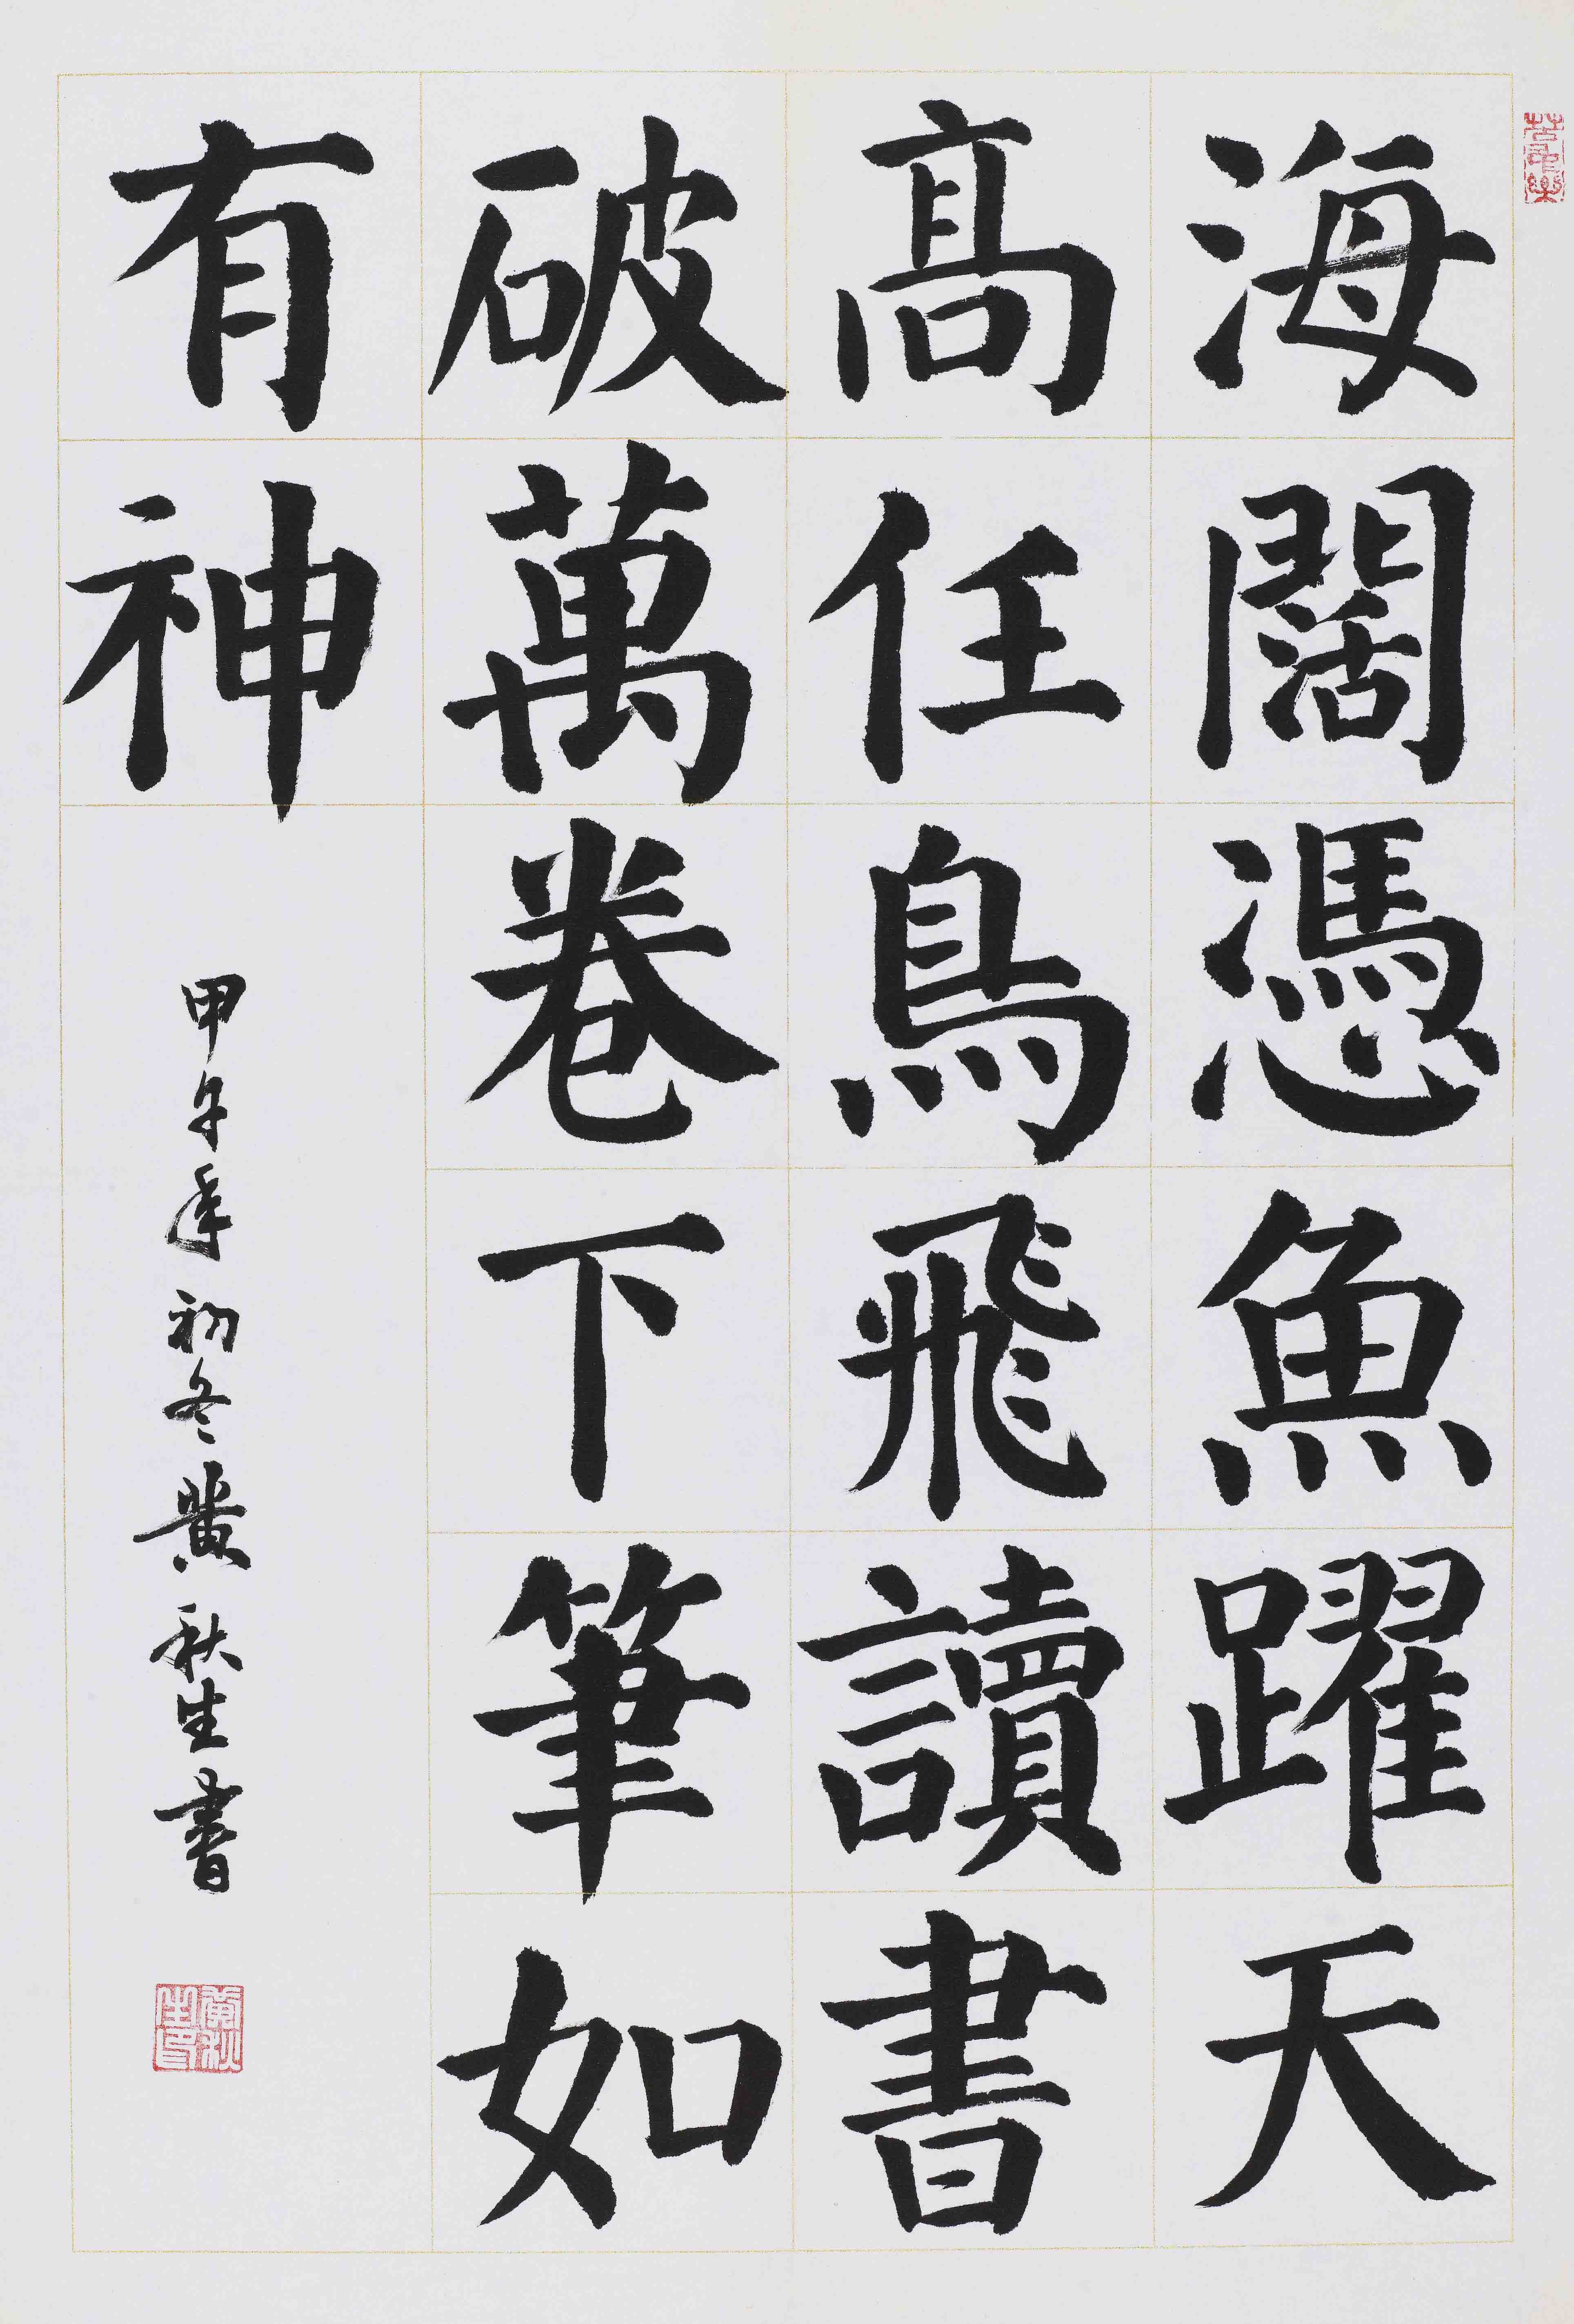 海闊憑魚躍天
高任鳥飛讀書
破萬卷下筆如
有神
甲午年初冬黄秋生書
黄秋生印